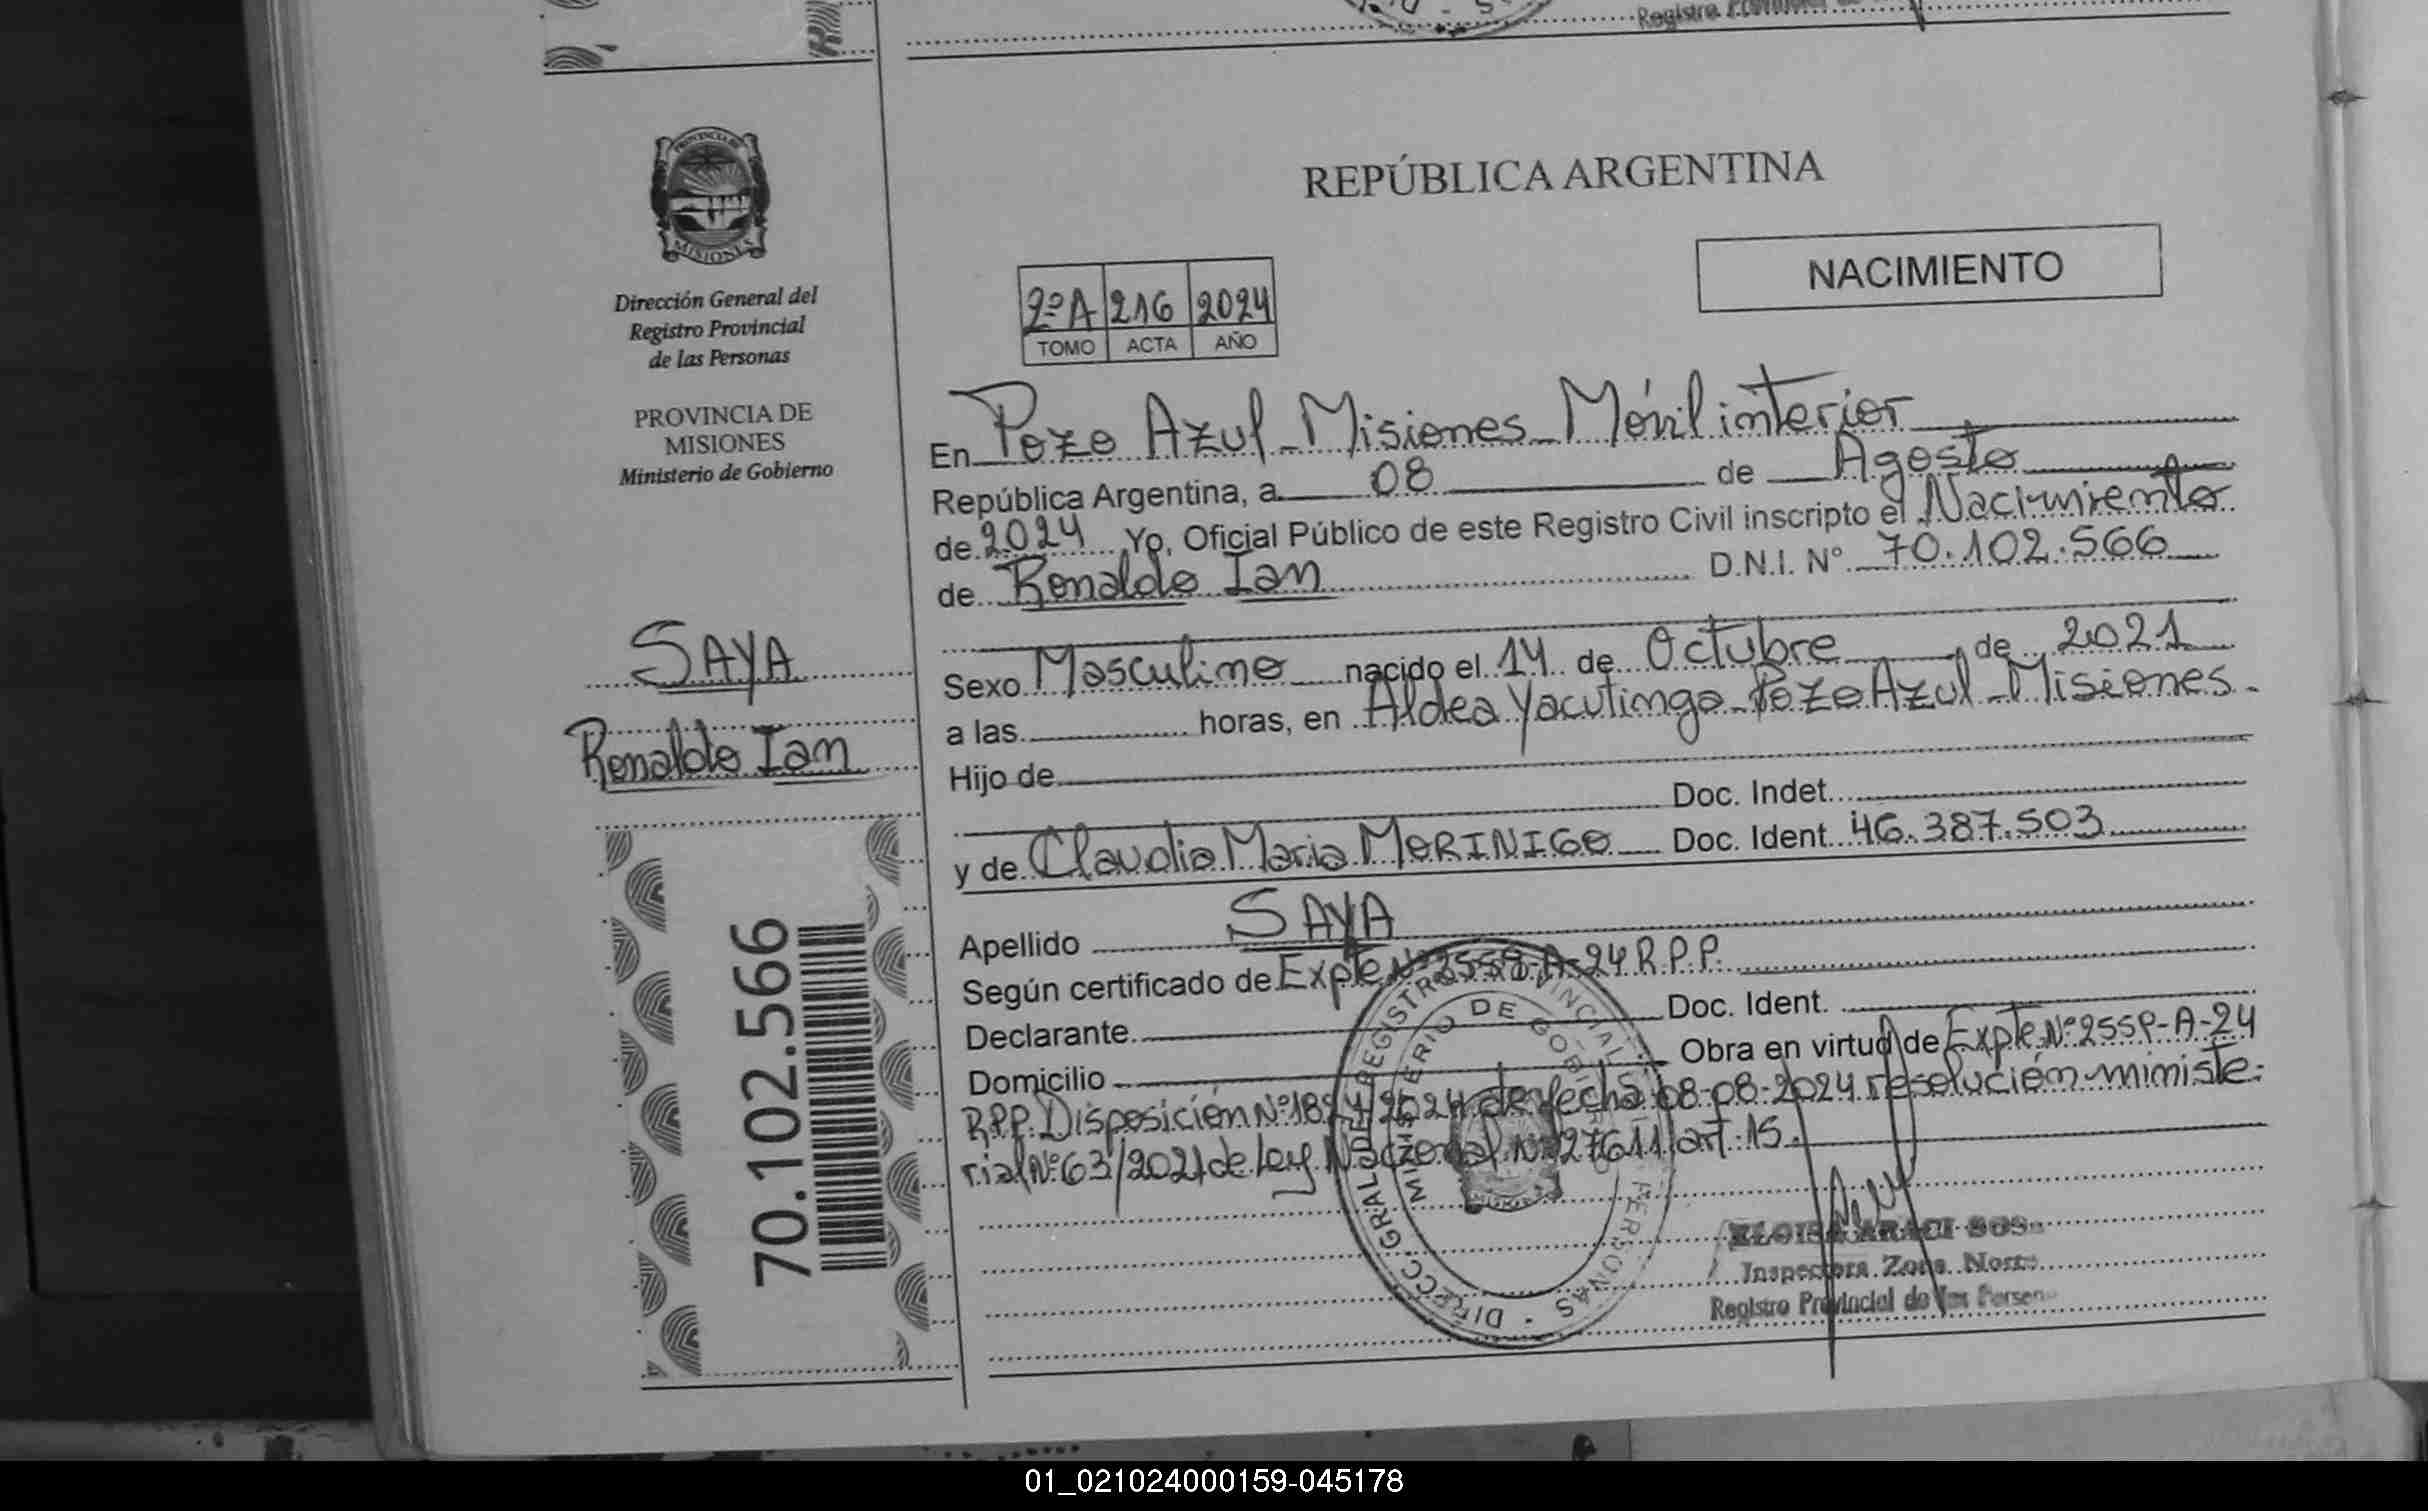 Registro Provincial de
PROVINCIA DE
MISIONES
Dirección General del
Registro Provincial
de las Personas
PROVINCIA DE
MISIONES
Ministerio de Gobierno
SAYA
Ronaldo Ian
70.102.566
REPÚBLICA ARGENTINA
NACIMIENTO
2º A 216 2024
TOMO ACTA AÑO
En Pozo Azul - Misiones - Móvil interior
República Argentina, a 08 de Agosto
de 2024 Yo, Oficial Público de este Registro Civil inscripto el Nacimiento
de Ronaldo Ian D.N.I. Nº 70.102.566
Sexo Masculino nacido el 14 de Octubre de 2021
a las horas, en Aldea Yacutinga - Pozo Azul - Misiones -
Hijo de
Doc. Indet.
y de Claudia Maria MORINIGO Doc. Ident. 46.387.503
Apellido SAYA
Según certificado de Expte Nº 2559-A-24 R.P.P.
Declarante. Doc. Ident.
Domicilio Obra en virtud de Expte Nº 2559-A-24
R.P.P. Disposición Nº 1824/2024 de fecha 08-08-2024 resolución ministe-
rial Nº 63/2021 de Ley Nacional Nº 27611 art. 15.
DIRECC. GRAL. DE REGISTRO PROVINCIAL PERSONAS
MINISTERIO DE GOBIERNO
ELOISA ARACI SOS
Inspectora Zona Norte
Registro Provincial de las Person
01_021024000159-045178